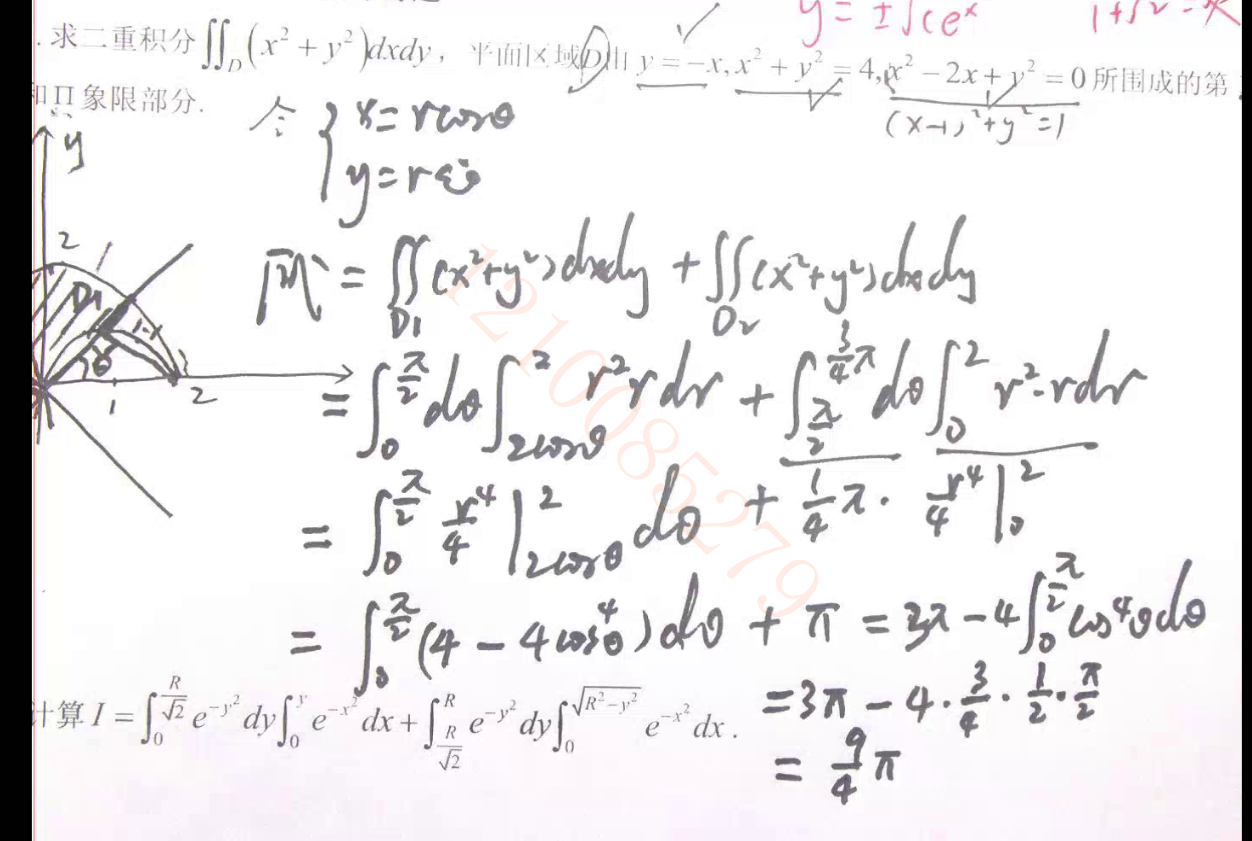 y = ±∫Ce^x
. 求二重积分 ∬_D (x² + y²)dxdy, 平面区域D由 y = -x, x² + y² = 4, x² - 2x + y² = 0 所围成的第
和Ⅱ象限部分.
(x-1)²+y²=1
令 { x = rcosθ
y = r
y
2
D1
θ
1 2
原式 = ∬_D1 (x²+y²)dxdy + ∬_D2 (x²+y²)dxdy
= ∫_0^{π/2} dθ ∫_{2cosθ}^2 r²rdr + ∫_{π/2}^{3/4 π} dθ ∫_0^2 r²·rdr
= ∫_0^{π/2} r⁴/4 |_{2cosθ}^2 dθ + 1/4 π · r⁴/4 |_0^2
= ∫_0^{π/2} (4 - 4cos⁴θ)dθ + π = 3π - 4∫_0^{π/2} cos⁴θdθ
计算 I = ∫_0^{R/√2} e^{-y²} dy ∫_0^y e^{-x²} dx + ∫_{R/√2}^R e^{-y²} dy ∫_0^{√(R²-y²)} e^{-x²} dx .
= 3π - 4 · 3/4 · 1/2 · π/2
= 9/4 π
1210085279